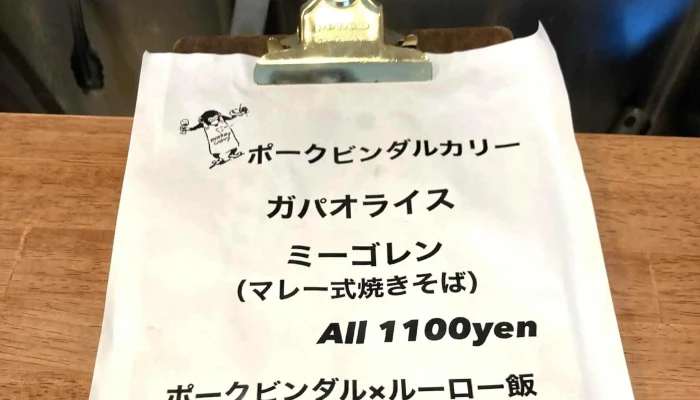 ポークビンダルカリー
ガパオライス
ミーゴレン
(マレー式焼きそば)
All 1100yen
ポークビンダル×ルーロー飯